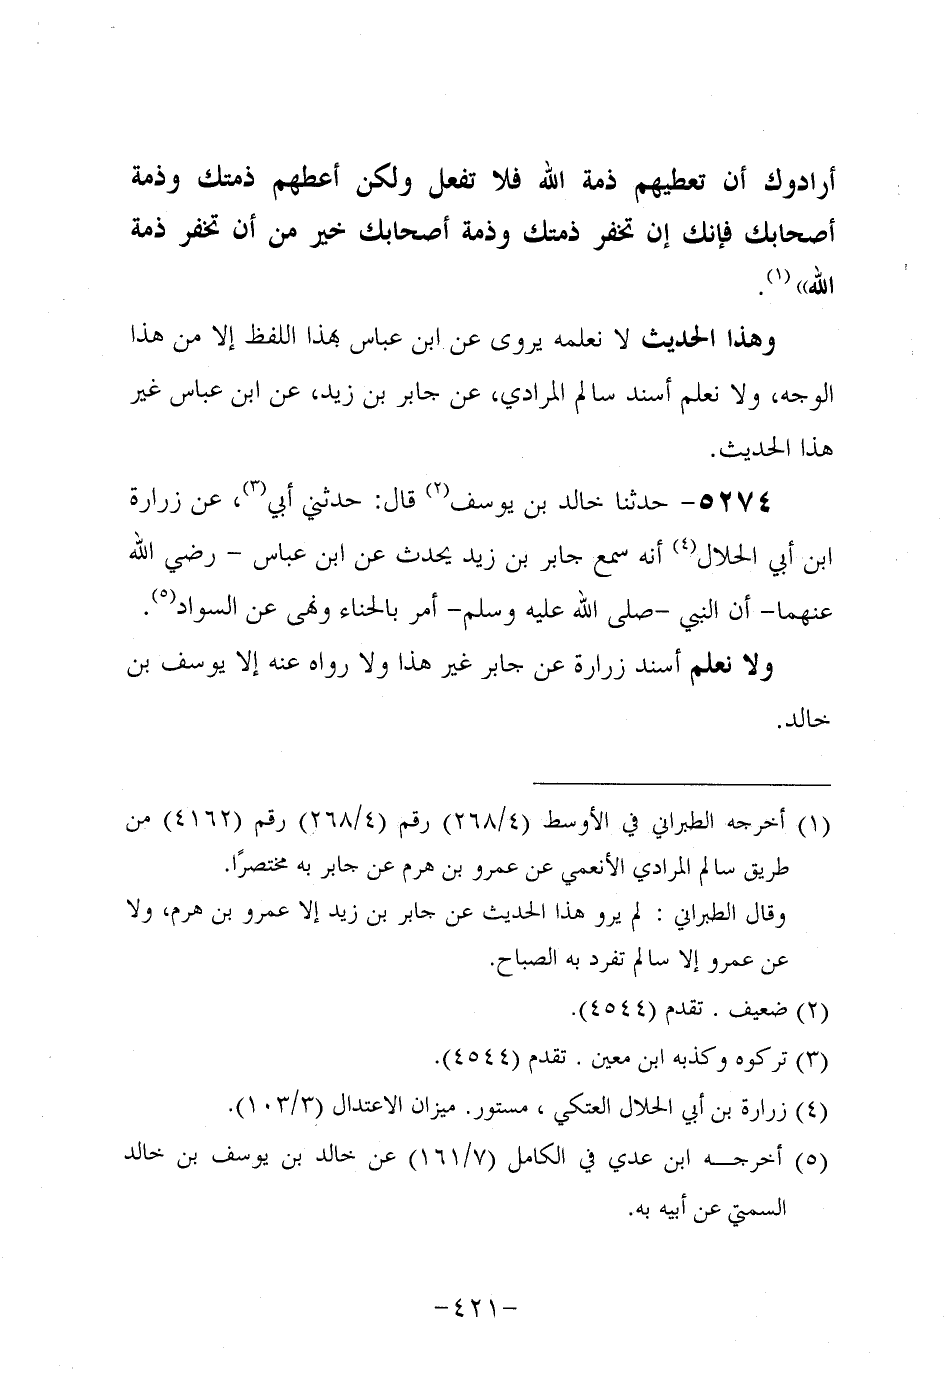 أرادوك أن تعطيهم ذمة الله فلا تفعل ولكن أعطهم ذمتك وذمة
أصحابك فإنك إن تخفر ذمتك وذمة أصحابك خير من أن تخفر ذمة
الله»(١).
وهذا الحديث لا نعلمه يروى عن ابن عباس بهذا اللفظ إلا من هذا
الوجه، ولا نعلم أسند سالم المرادي، عن جابر بن زيد، عن ابن عباس غير
هذا الحديث.
٥٢٧٤- حدثنا خالد بن يوسف(٢) قال: حدثني أبي(٣)، عن زرارة
ابن أبي الحلال(٤) أنه سمع جابر بن زيد يحدث عن ابن عباس – رضي الله
عنهما- أن النبي -صلى الله عليه وسلم- أمر بالحناء ونهى عن السواد(٥).
ولا نعلم أسند زرارة عن جابر غير هذا ولا رواه عنه إلا يوسف بن
خالد.
(١) أخرجه الطبراني في الأوسط (٢٦٨/٤) رقم (٢٦٨/٤) رقم (٤١٦٢) من
طريق سالم المرادي الأنعمي عن عمرو بن هرم عن جابر به مختصرًا.
وقال الطبراني : لم يرو هذا الحديث عن جابر بن زيد إلا عمرو بن هرم، ولا
عن عمرو إلا سالم تفرد به الصباح.
(٢) ضعيف . تقدم (٤٥٤٤).
(٣) تركوه وكذبه ابن معين . تقدم (٤٥٤٤).
(٤) زرارة بن أبي الحلال العتكي ، مستور. ميزان الاعتدال (١٠٣/٣).
(٥) أخرجـــه ابن عدي في الكامل (١٦١/٧) عن خالد بن يوسف بن خالد
السمتي عن أبيه به.
-٤٢١-